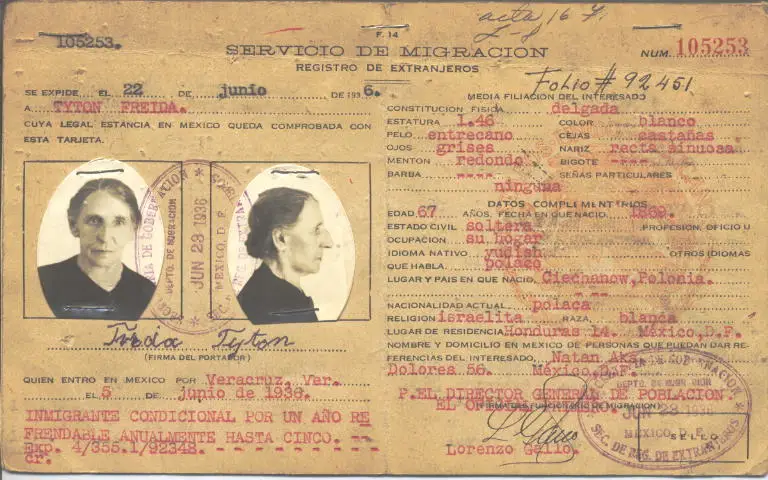 acta 16 f.
105253.
F. 14
SERVICIO DE MIGRACION
NUM. 105253
REGISTRO DE EXTRANJEROS
Folio # 92451
SE EXPIDE EL 22 DE junio DE 1936.
A TYTON FREIDA.
CUYA LEGAL ESTANCIA EN MEXICO QUEDA COMPROBADA CON
ESTA TARJETA.
SEC. DE GOBERNACION
DEPTO. DE MIGRACION
JUN 23 1936
MEXICO, D. F.
Freda Tyton
(FIRMA DEL PORTADOR)
QUIEN ENTRO EN MEXICO POR Veracruz, Ver.
EL 5 DE junio de 1936.
INMIGRANTE CONDICIONAL POR UN AÑO RE
FRENDABLE ANUALMENTE HASTA CINCO. --
Exp. 4/355.1/92348. - - - - - - - - - -
cr.
MEDIA FILIACION DEL INTERESADO
CONSTITUCION FISICA delgada
ESTATURA 1.46 COLOR blanco
PELO entrecano CEJAS castañas
OJOS grises NARIZ recta sinuosa
MENTON redondo BIGOTE ----
BARBA ---- SEÑAS PARTICULARES
ninguna
DATOS COMPLEMENTARIOS
EDAD 67 AÑOS. FECHA EN QUE NACIO. 1869.
ESTADO CIVIL soltera PROFESION, OFICIO U
OCUPACION su hogar
IDIOMA NATIVO yudish OTROS IDIOMAS
QUE HABLA. polaco
LUGAR Y PAIS EN QUE NACIO. Ciechanow, Polonia.
--
NACIONALIDAD ACTUAL polaca
RELIGION israelita RAZA. blanca
LUGAR DE RESIDENCIA Honduras 14. México, D.F.
NOMBRE Y DOMICILIO EN MEXICO DE PERSONAS QUE PUEDAN DAR RE-
FERENCIAS DEL INTERESADO. Natan Aks.
Dolores 56. México, D.F.
P. EL DIRECTOR GENERAL DE POBLACION.
(FIRMA DEL FUNCIONARIO DE MIGRACION)
Lorenzo Gallo.
DE GOBERNACION
DEPTO. DE MIGRACION
JUN 23 1936
MEXICO, D. F.
SEC. DE REG. DE EXTRANJEROS
SELLO